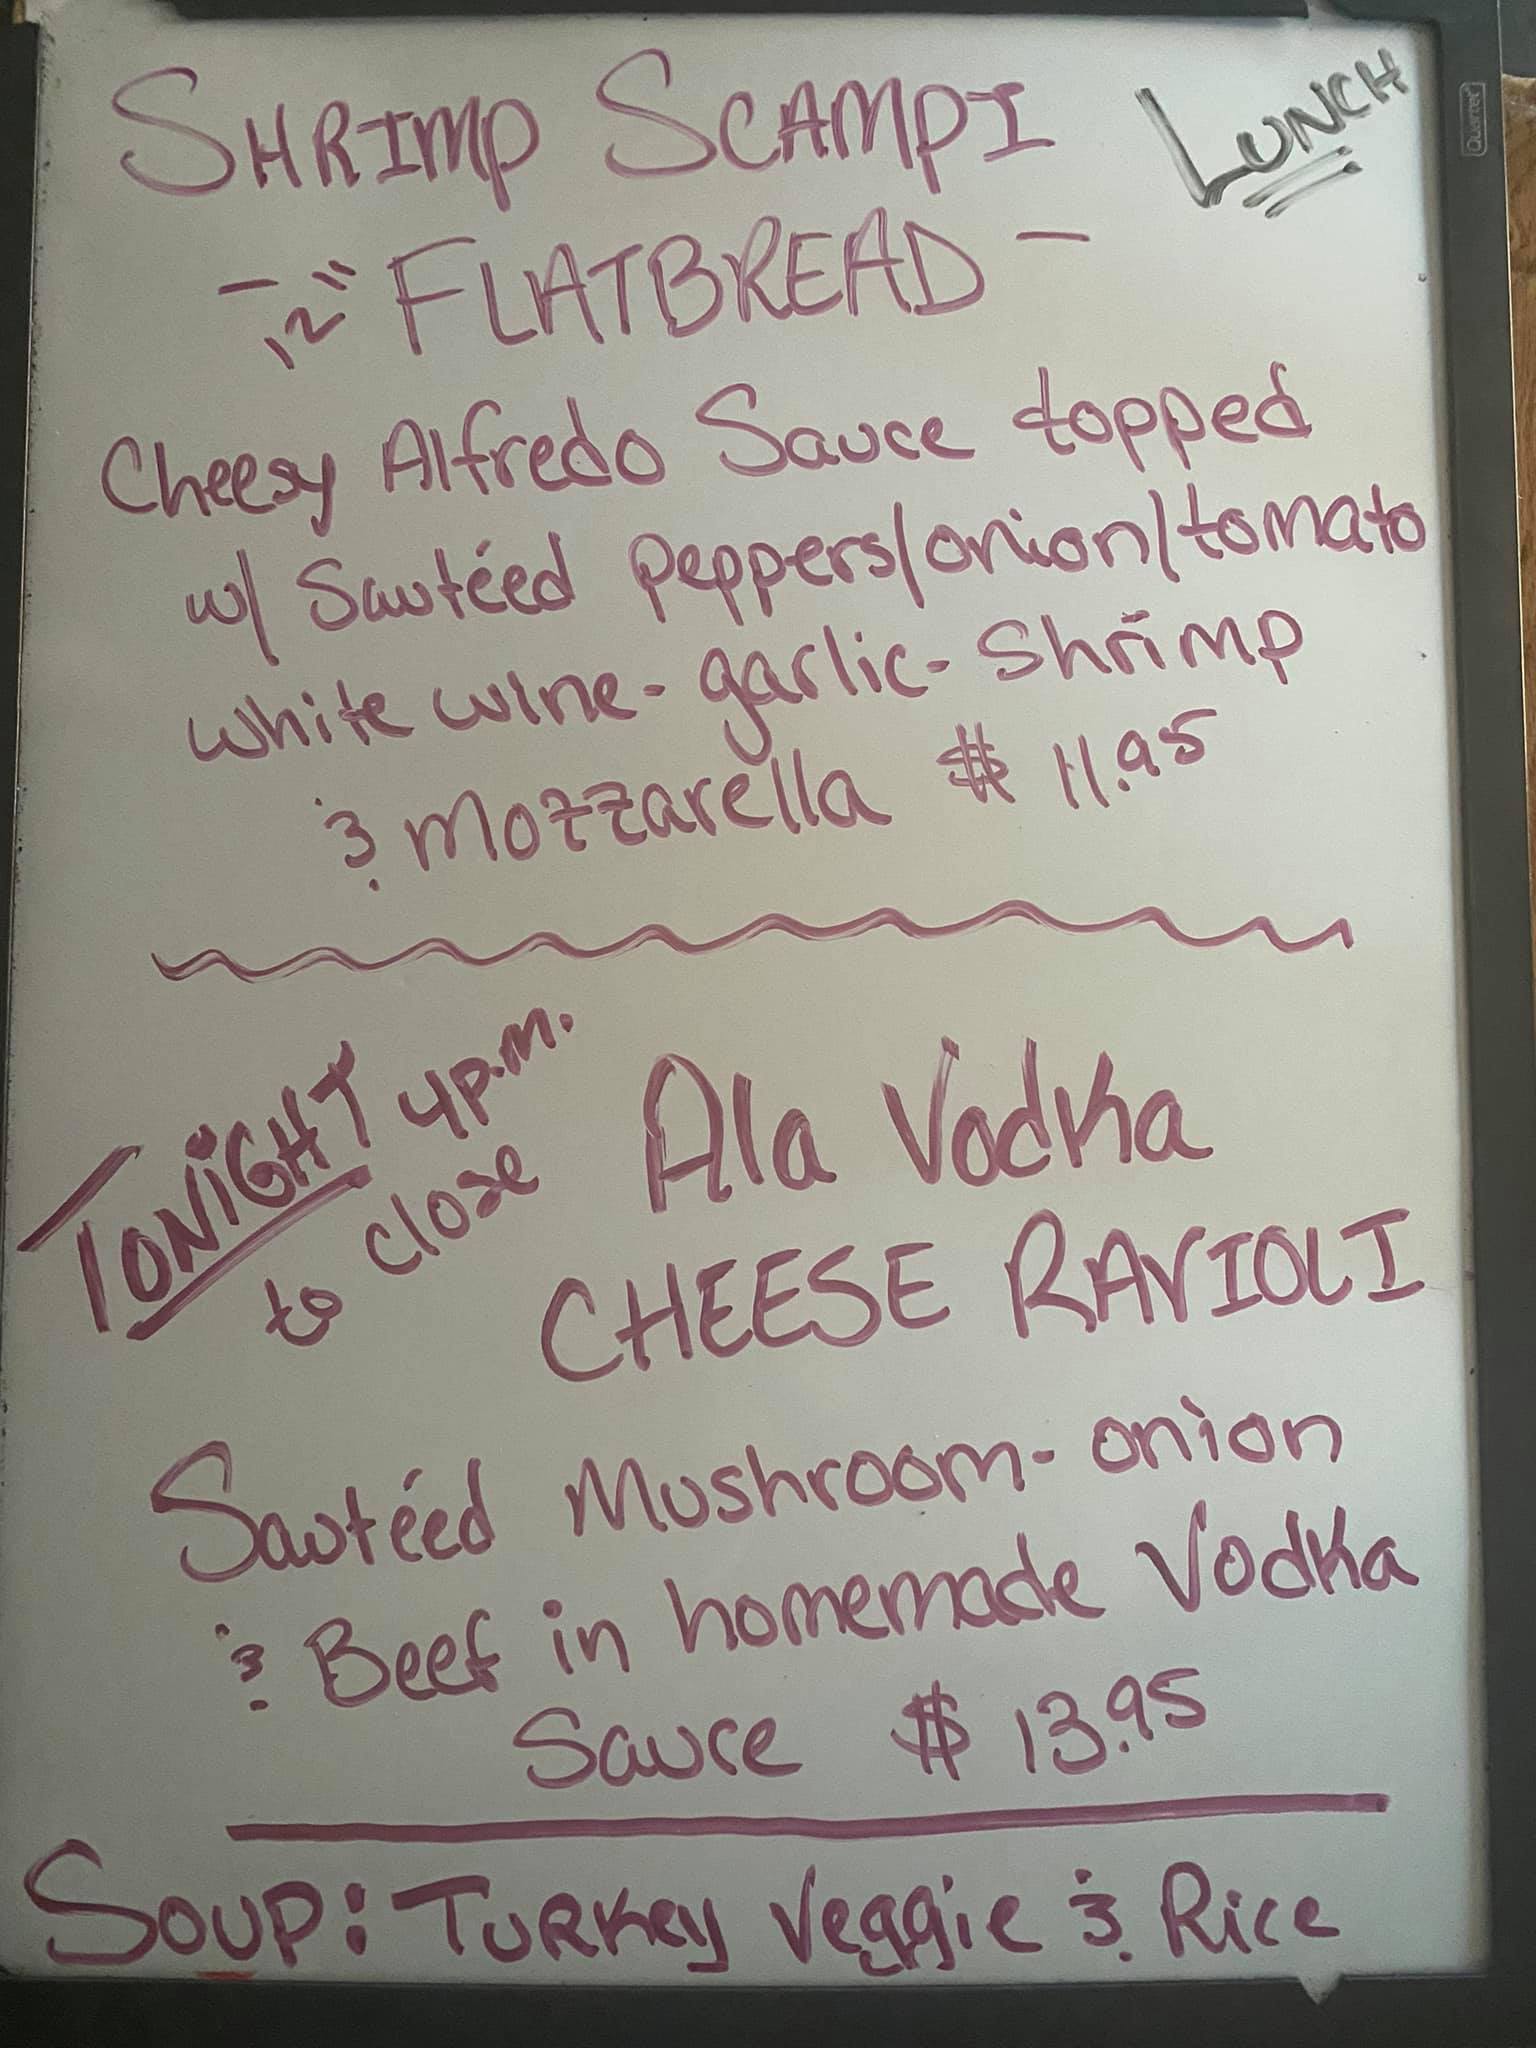 SHRIMP SCAMPI
LUNCH
- 12" FLATBREAD -
Cheesy Alfredo Sauce topped
w/ Sautéed Peppers/onion/tomato
white wine - garlic - Shrimp
& Mozzarella $ 11.95
TONIGHT 4 p.m.
to close
Ala Vodka
CHEESE RAVIOLI
Sautéed Mushroom - onion
& Beef in homemade Vodka
Sauce $ 13.95
SOUP: TURKey Veggie & Rice
Quartet